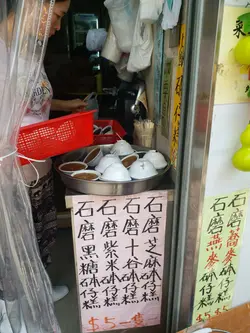 石磨芝麻砵仔糕
石磨十谷砵仔糕
石磨紫米砵仔糕
石磨黑糖砵仔糕
$5一隻
石磨蕎麥砵仔糕
石磨燕麥砵仔糕